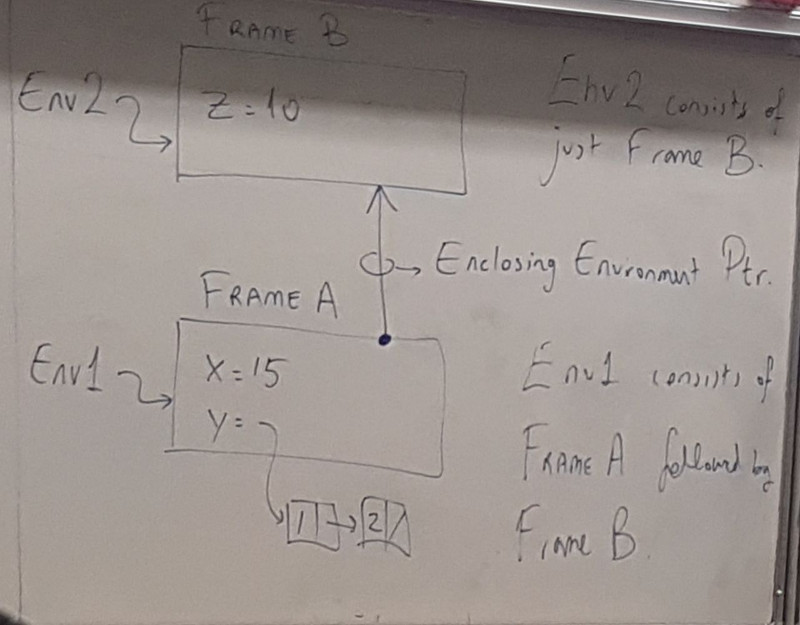 FRAME B
Env2
Z=10
Env2 consists of
just Frame B.
Enclosing Environment Ptr.
FRAME A
Env1
X=15
Y=
1 2
Env1 consists of
FRAME A followed by
Frame B.